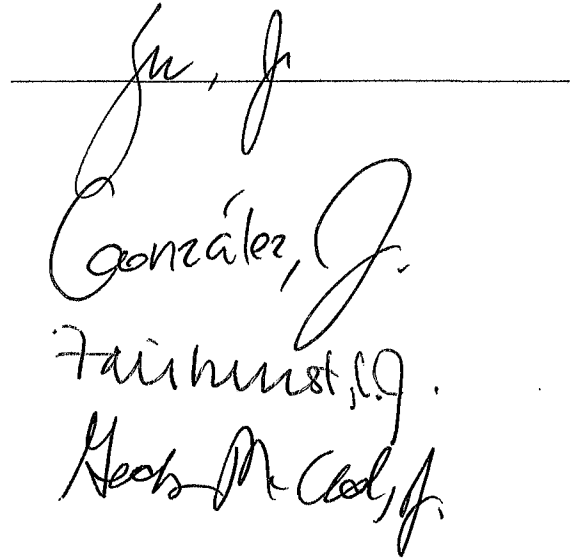 Yu, J
González, J.
Fairhurst, C.J.
McCloud, J.